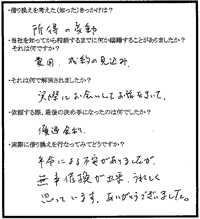 ・借り換えを考えた(知った)きっかけは？
所得の変動
・当社を知ってから相談するまでに何か躊躇することがありましたか？
それは何ですか？
費用、成約の見込み
・それは何で解消されましたか？
実際にお会いしてお話をきいて。
・依頼する際、最後の決め手になったのは何でしたか？
優遇金利
・実際に借り換えを行なってみてどうですか？
年令による不安がありましたが、
無事借換が出来、うれしく
思っています。ありがとうございました。